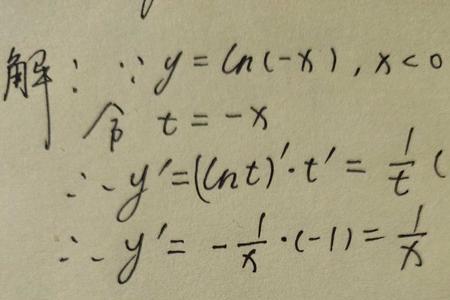 解: ∵ y = ln(-x), x<0
令 t = -x
∴ y' = (lnt)'·t' = 1/t (
∴ y' = -1/x·(-1) = 1/x